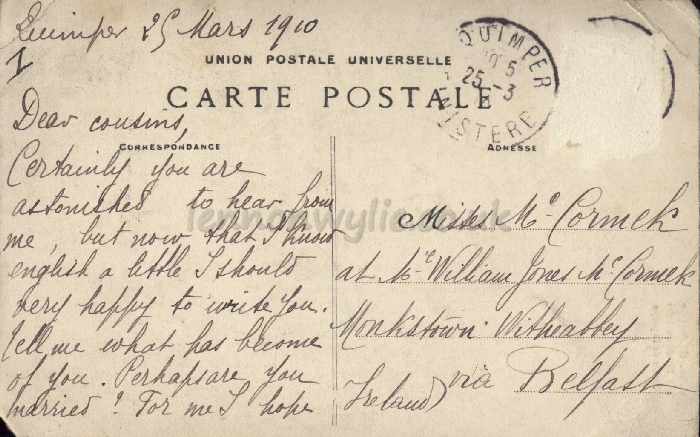 Quimper 25 Mars 1910
1
UNION POSTALE UNIVERSELLE
CARTE POSTALE
QUIMPER
25 -3
FINISTERE
CORRESPONDANCE
ADRESSE
Dear cousins,
Certainly you are
astonished to hear from
me, but now that I know
english a little I should
very happy to write you.
Tell me what has become
of you. Perhaps are you
married? For me I hope
Miss Mc Cormek
at Mr William Jones Mc Cormek
Monkstown Witheabbey
via Belfast
Ireland
lennonwylie.co.uk